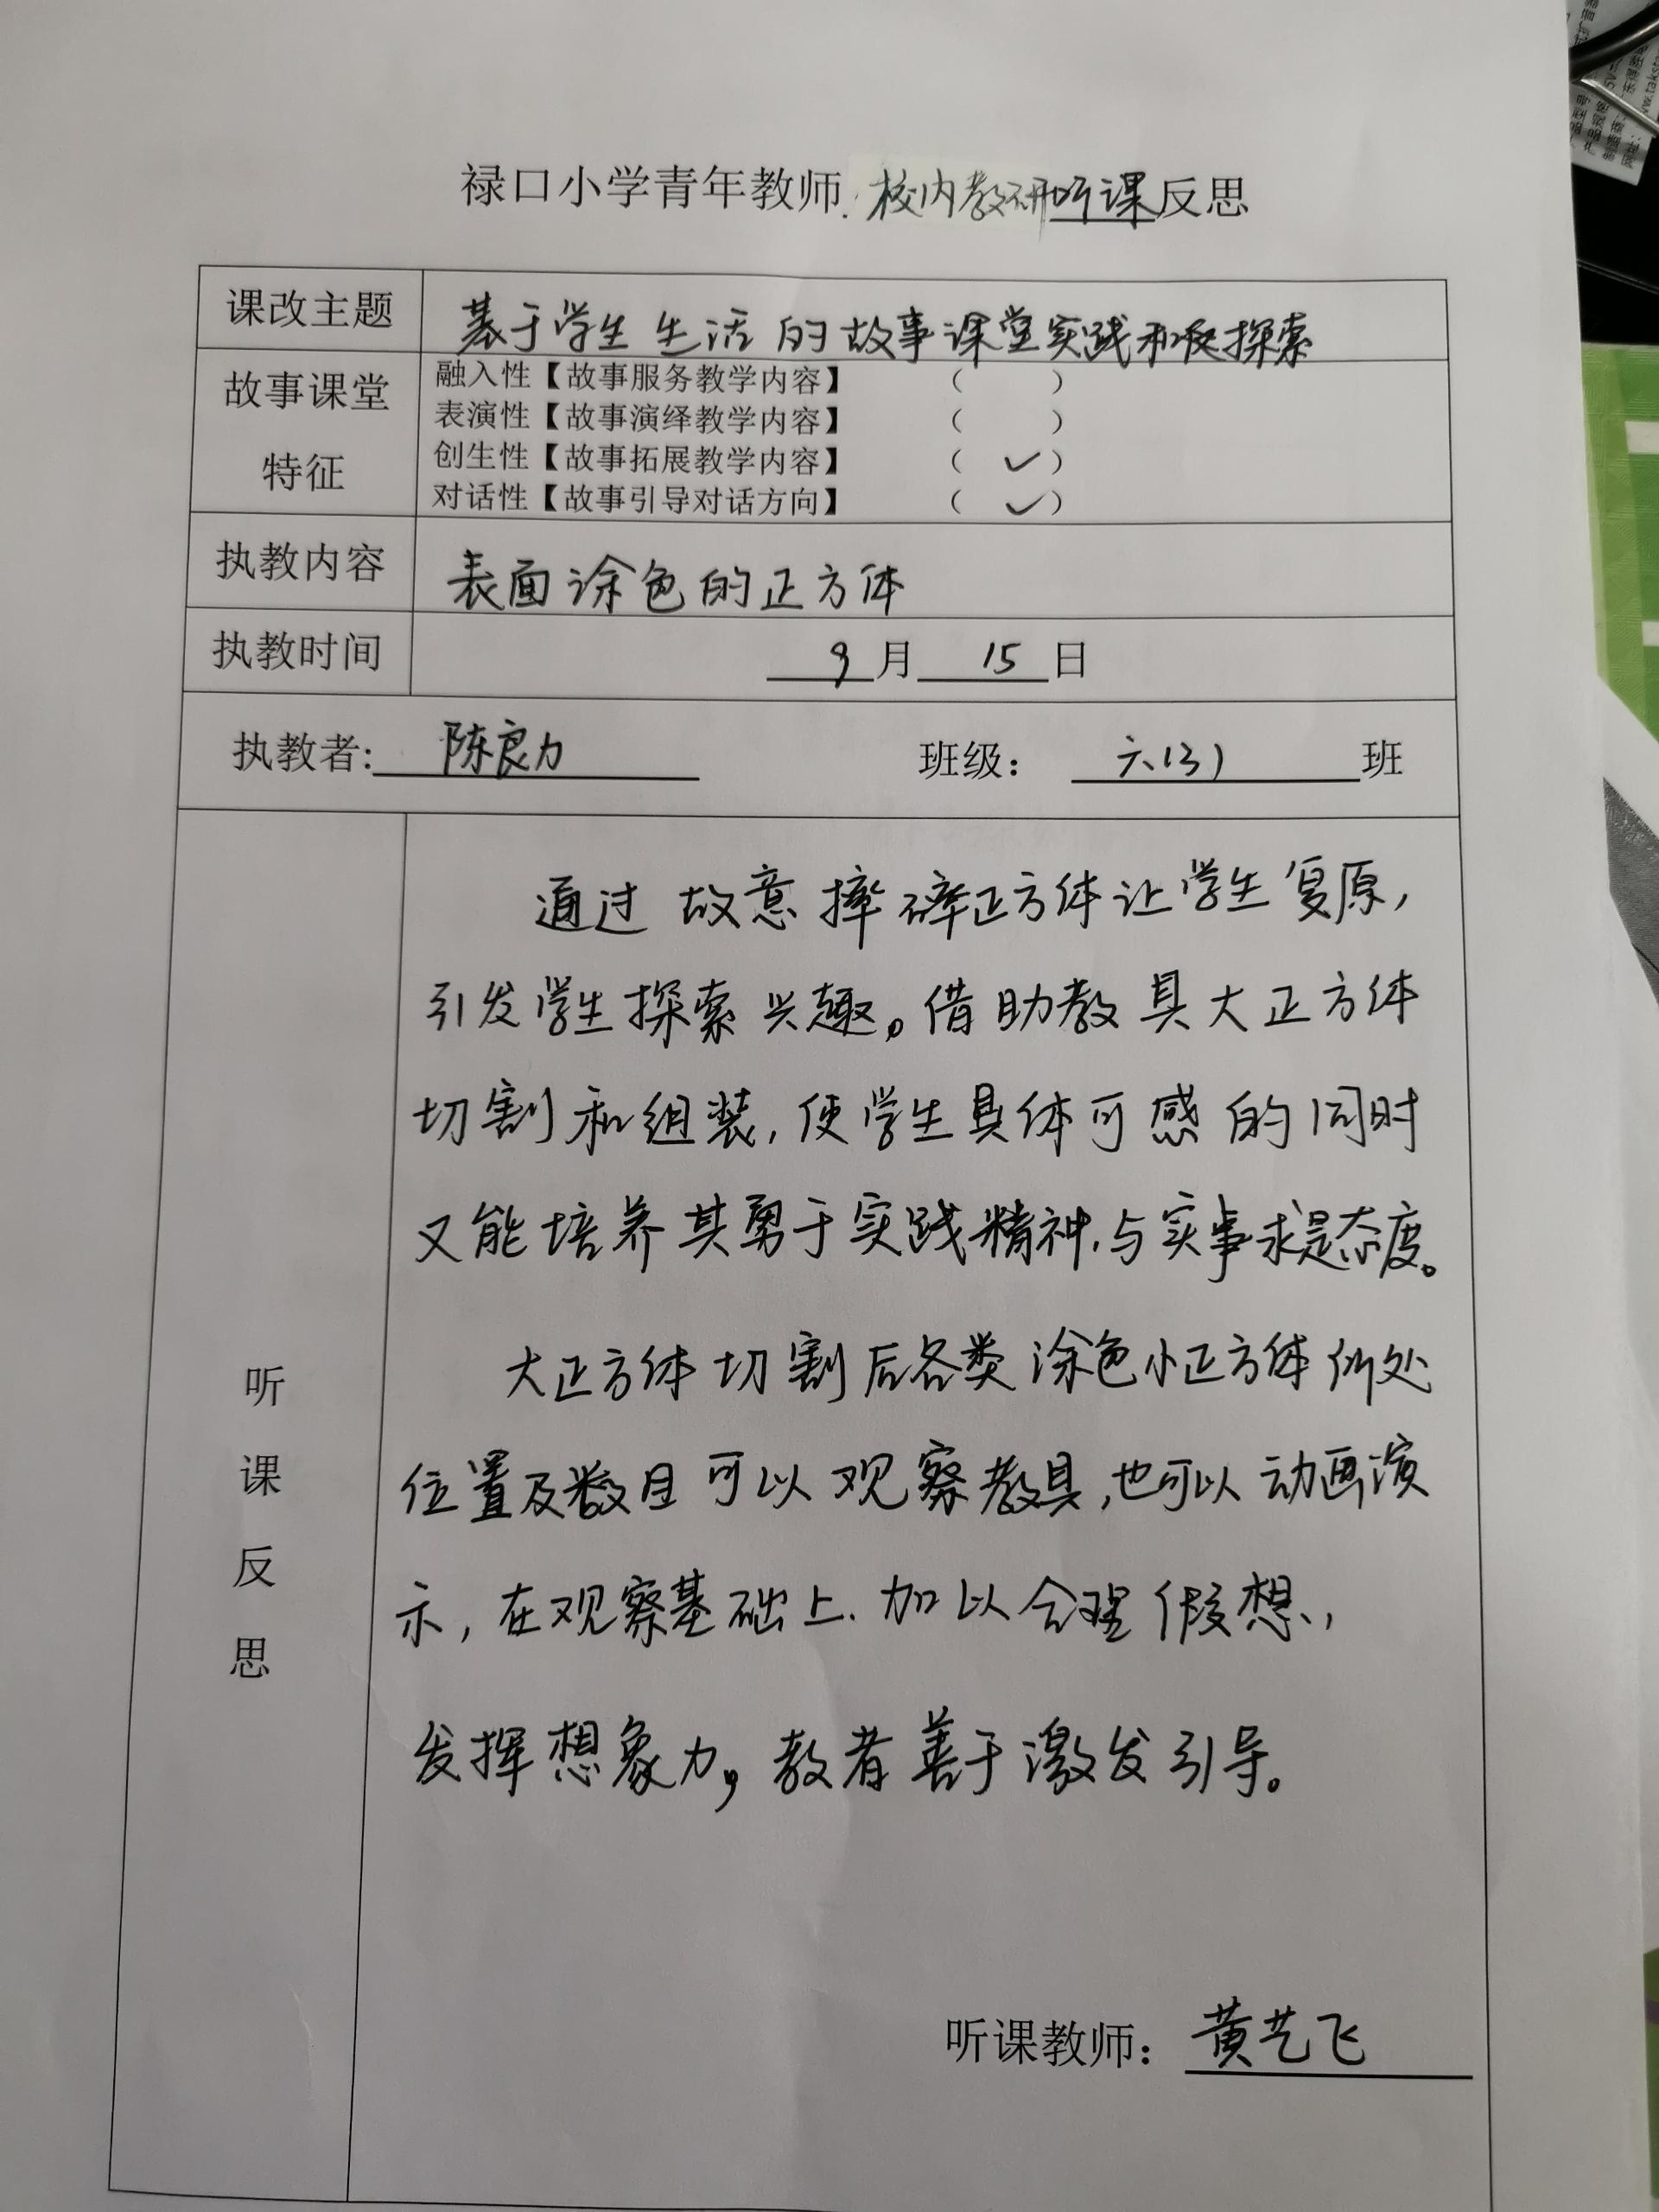 禄口小学青年教师校内教研听课反思
课改主题
基于学生生活的故事课堂实践和探索
故事课堂
特征
融入性【故事服务教学内容】 ( )
表演性【故事演绎教学内容】 ( )
创生性【故事拓展教学内容】 ( ✓ )
对话性【故事引导对话方向】 ( ✓ )
执教内容
表面涂色的正方体
执教时间
9月15日
执教者: 陈良力 班级: 六(3) 班
听
课
反
思
通过故意摔碎正方体让学生复原,
引发学生探索兴趣。借助教具大正方体
切割和组装,使学生具体可感的同时
又能培养其勇于实践精神与实事求是态度。
大正方体切割后各类涂色小正方体所处
位置及数目可以观察教具,也可以动画演
示,在观察基础上.加以合理假想,
发挥想象力,教者善于激发引导。
听课教师: 黄艺飞